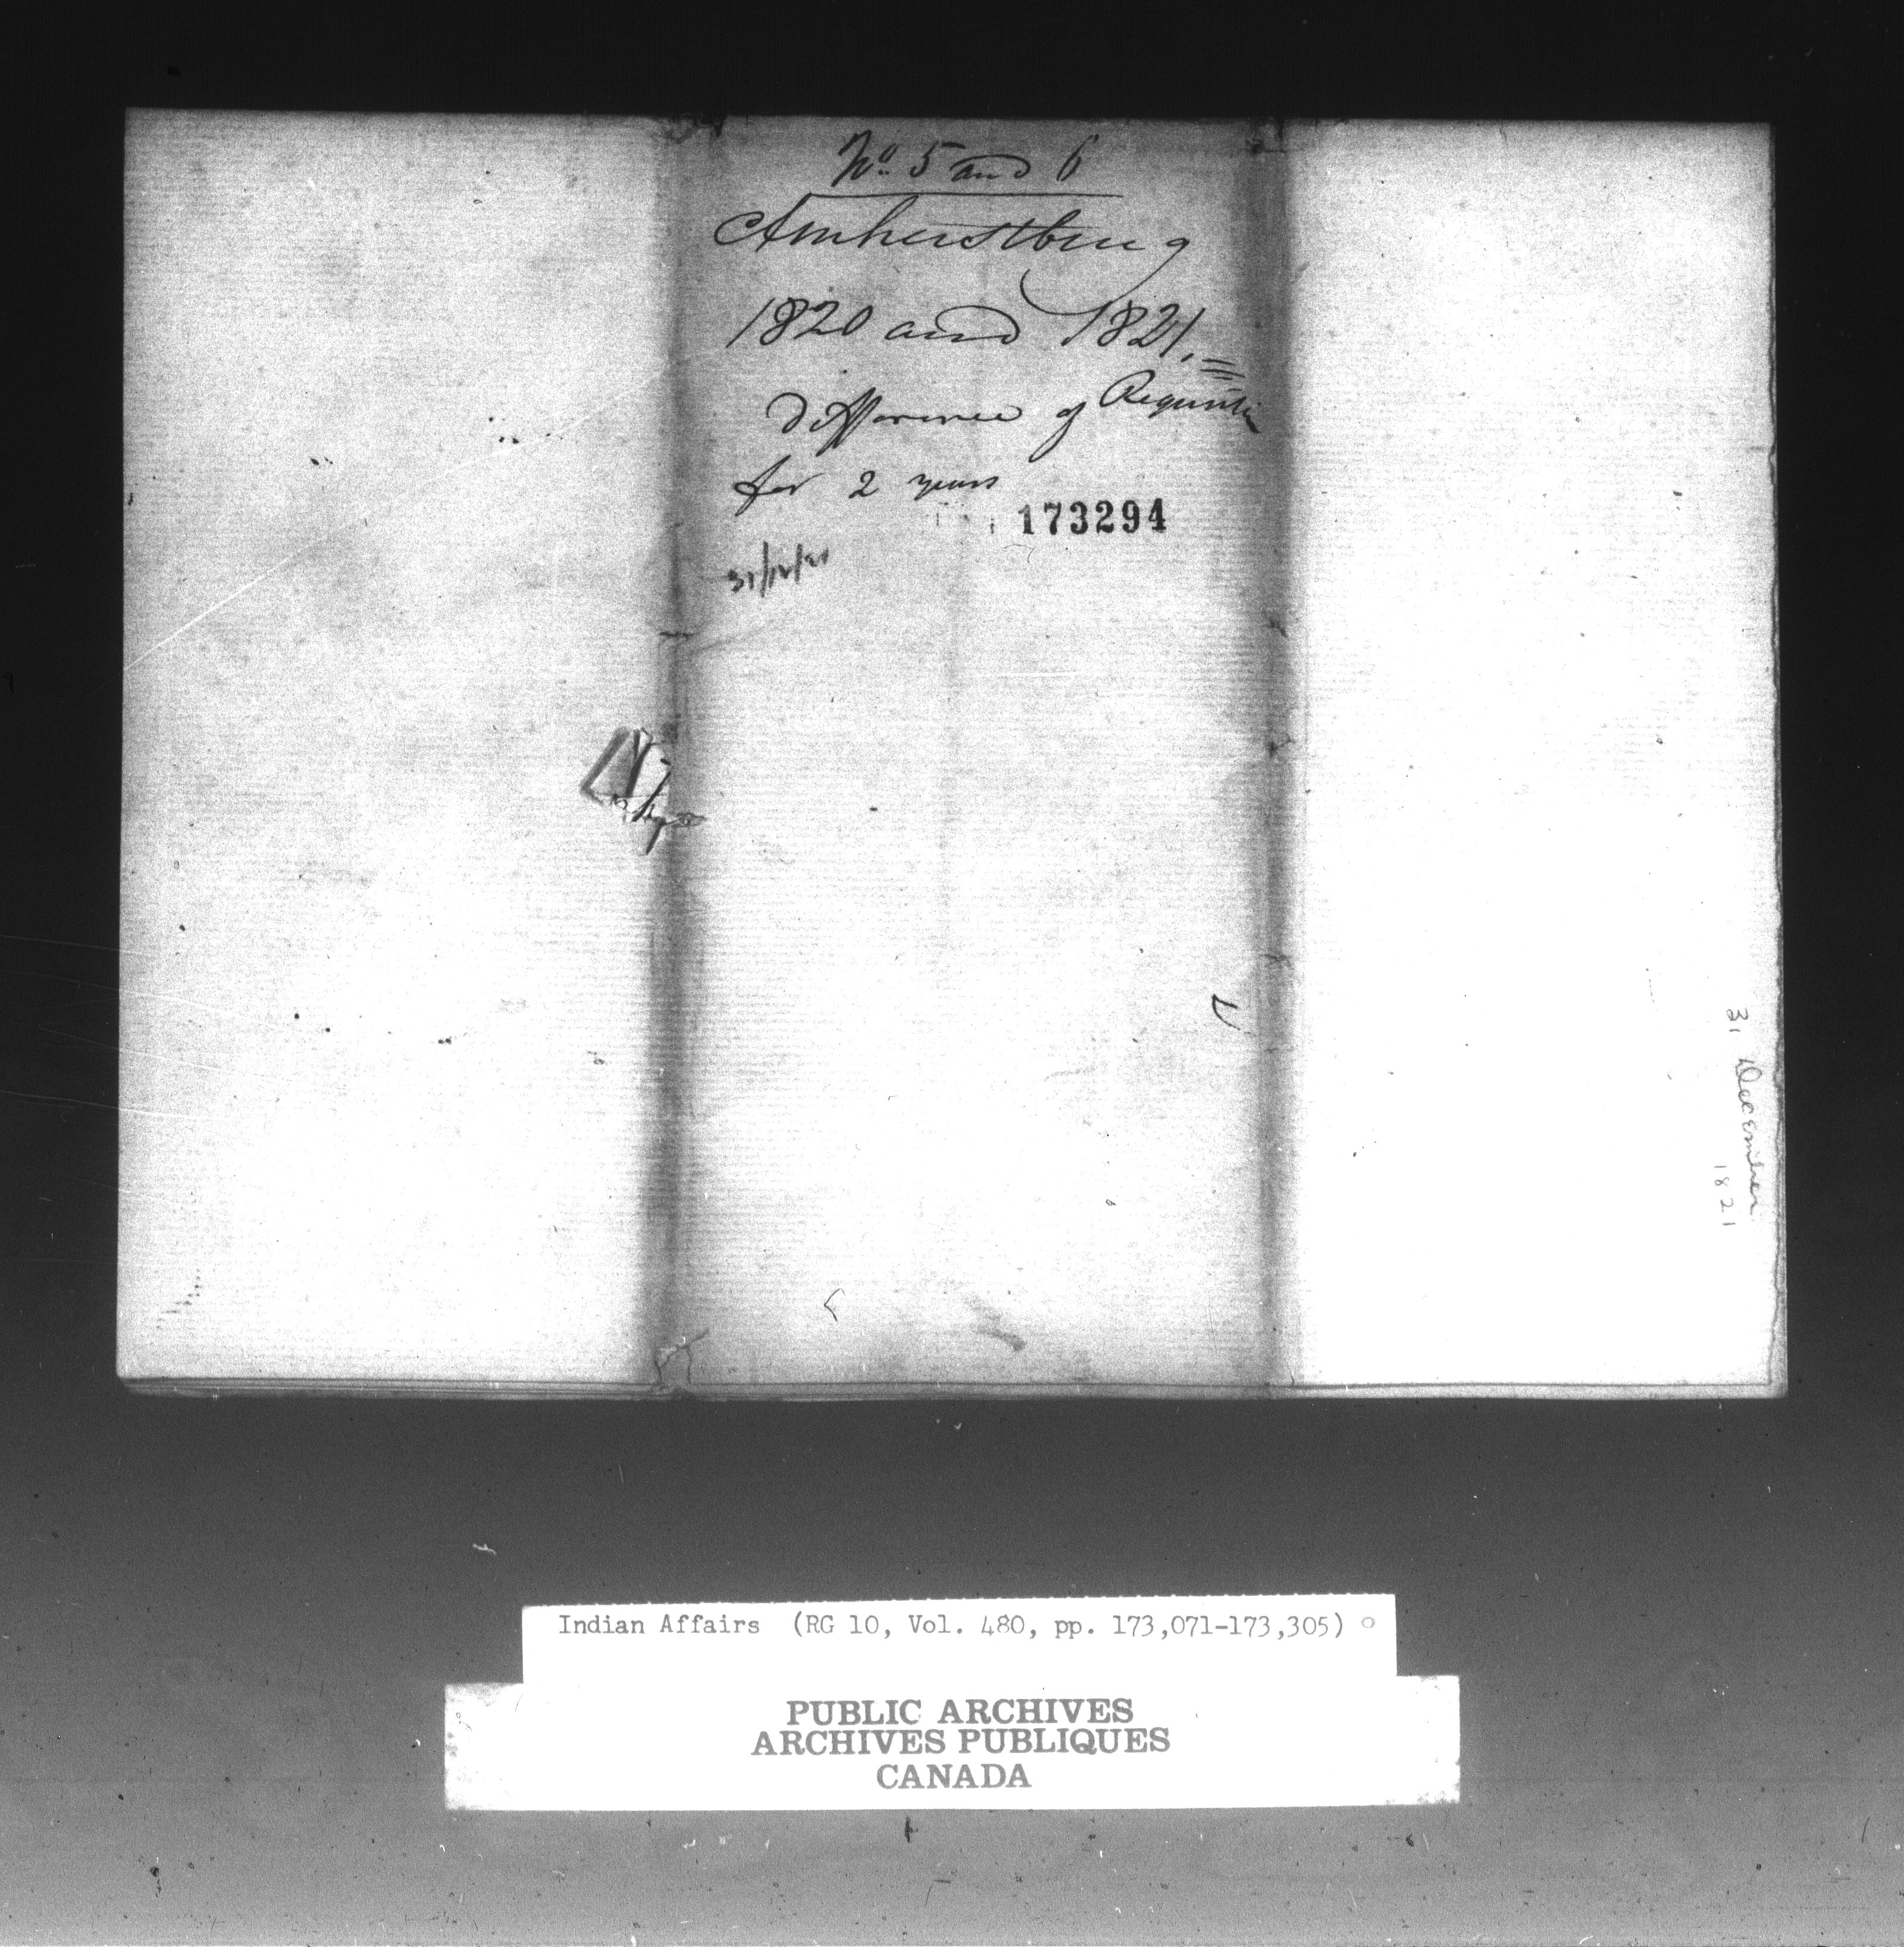 No. 5 and 6
Amherstburg
1820 and 1821.
difference of Requisition
for 2 years
173294
31/12/21
31 December
1821
Indian Affairs (RG 10, Vol. 480, pp. 173,071-173,305)
PUBLIC ARCHIVES
ARCHIVES PUBLIQUES
CANADA